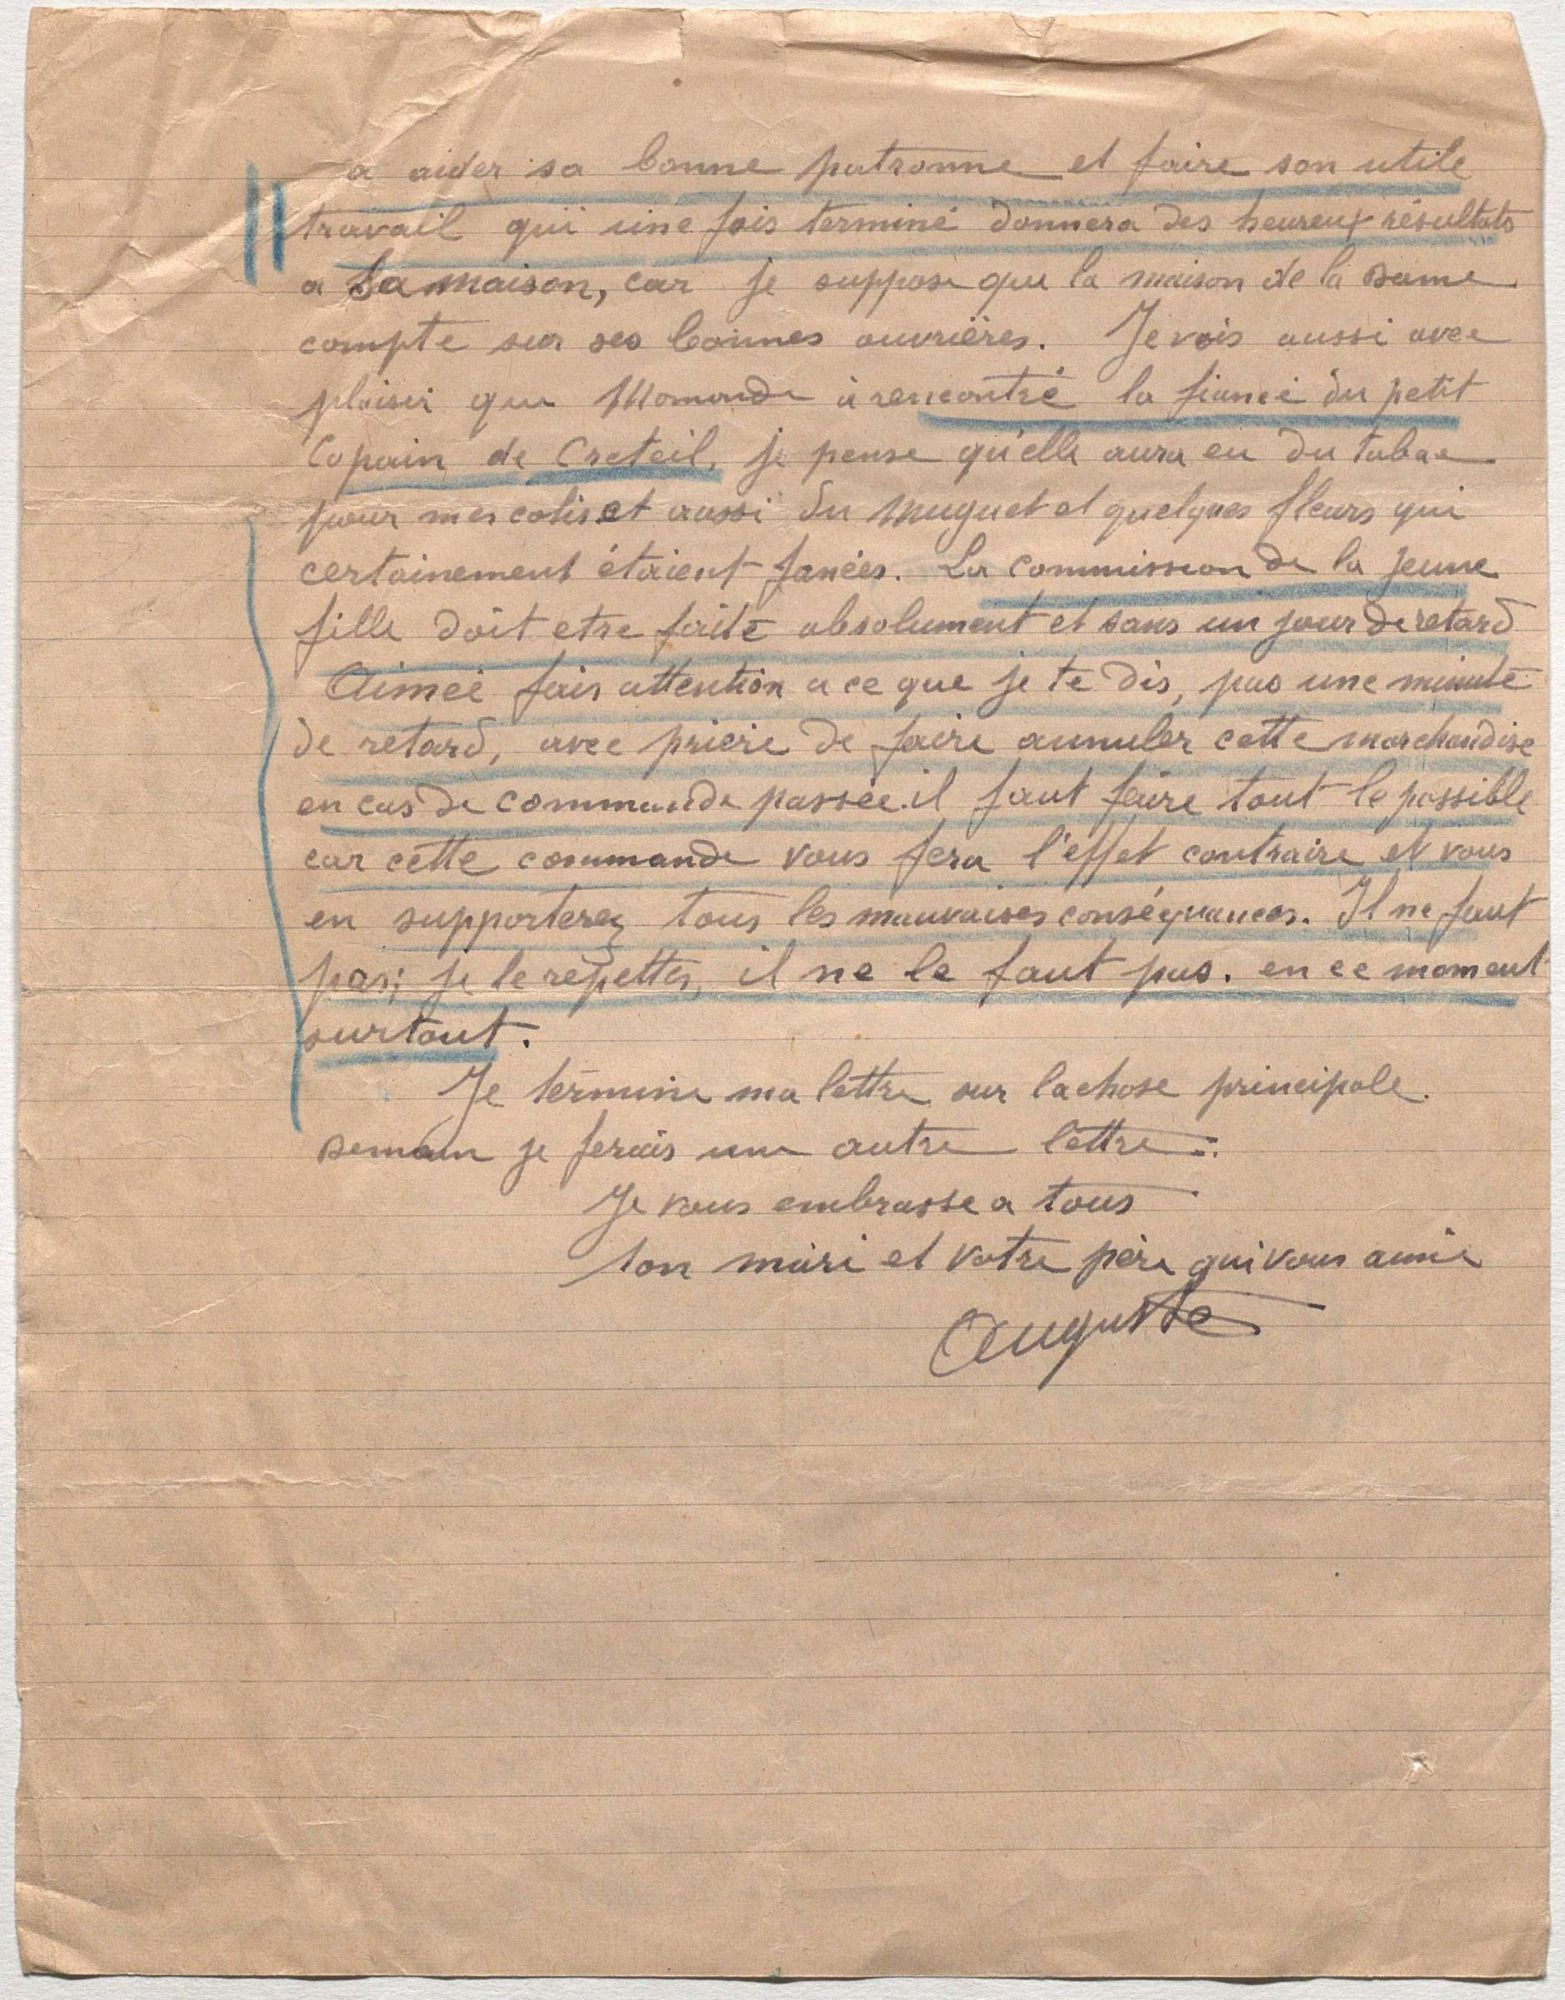 a aider sa bonne patronne et faire son utile
travail qui une fois terminé donnera des heureux résultats
a La maison, car je suppose que la maison de la Dame
compte sur ses bonnes ouvrières. Je vois aussi avec
plaisir que Momonde à rencontré la fiancé du petit
Copain de Creteil, je pense qu'elle aura eu du tabac
pour mes colis et aussi du muguet et quelques fleurs qui
certainement étaient fanées. La commission de la jeune
fille doit etre faite absolument et sans un jour de retard
Aimée fais attention a ce que je te dis, pas une minute
de retard, avec prière de faire annuler cette marchandise
en cas de commande passée. il faut faire tout le possible
car cette commande vous fera l'effet contraire et vous
en supporterez tous les mauvaises conséquances. Il ne faut
pas; je le repettes, il ne le faut pas. en ce moment
surtout.
Je termine ma lettre sur la chose principale.
Demain je ferais une autre lettre.
Je vous embrasse a tous
ton mari et votre père qui vous aime
Auguste